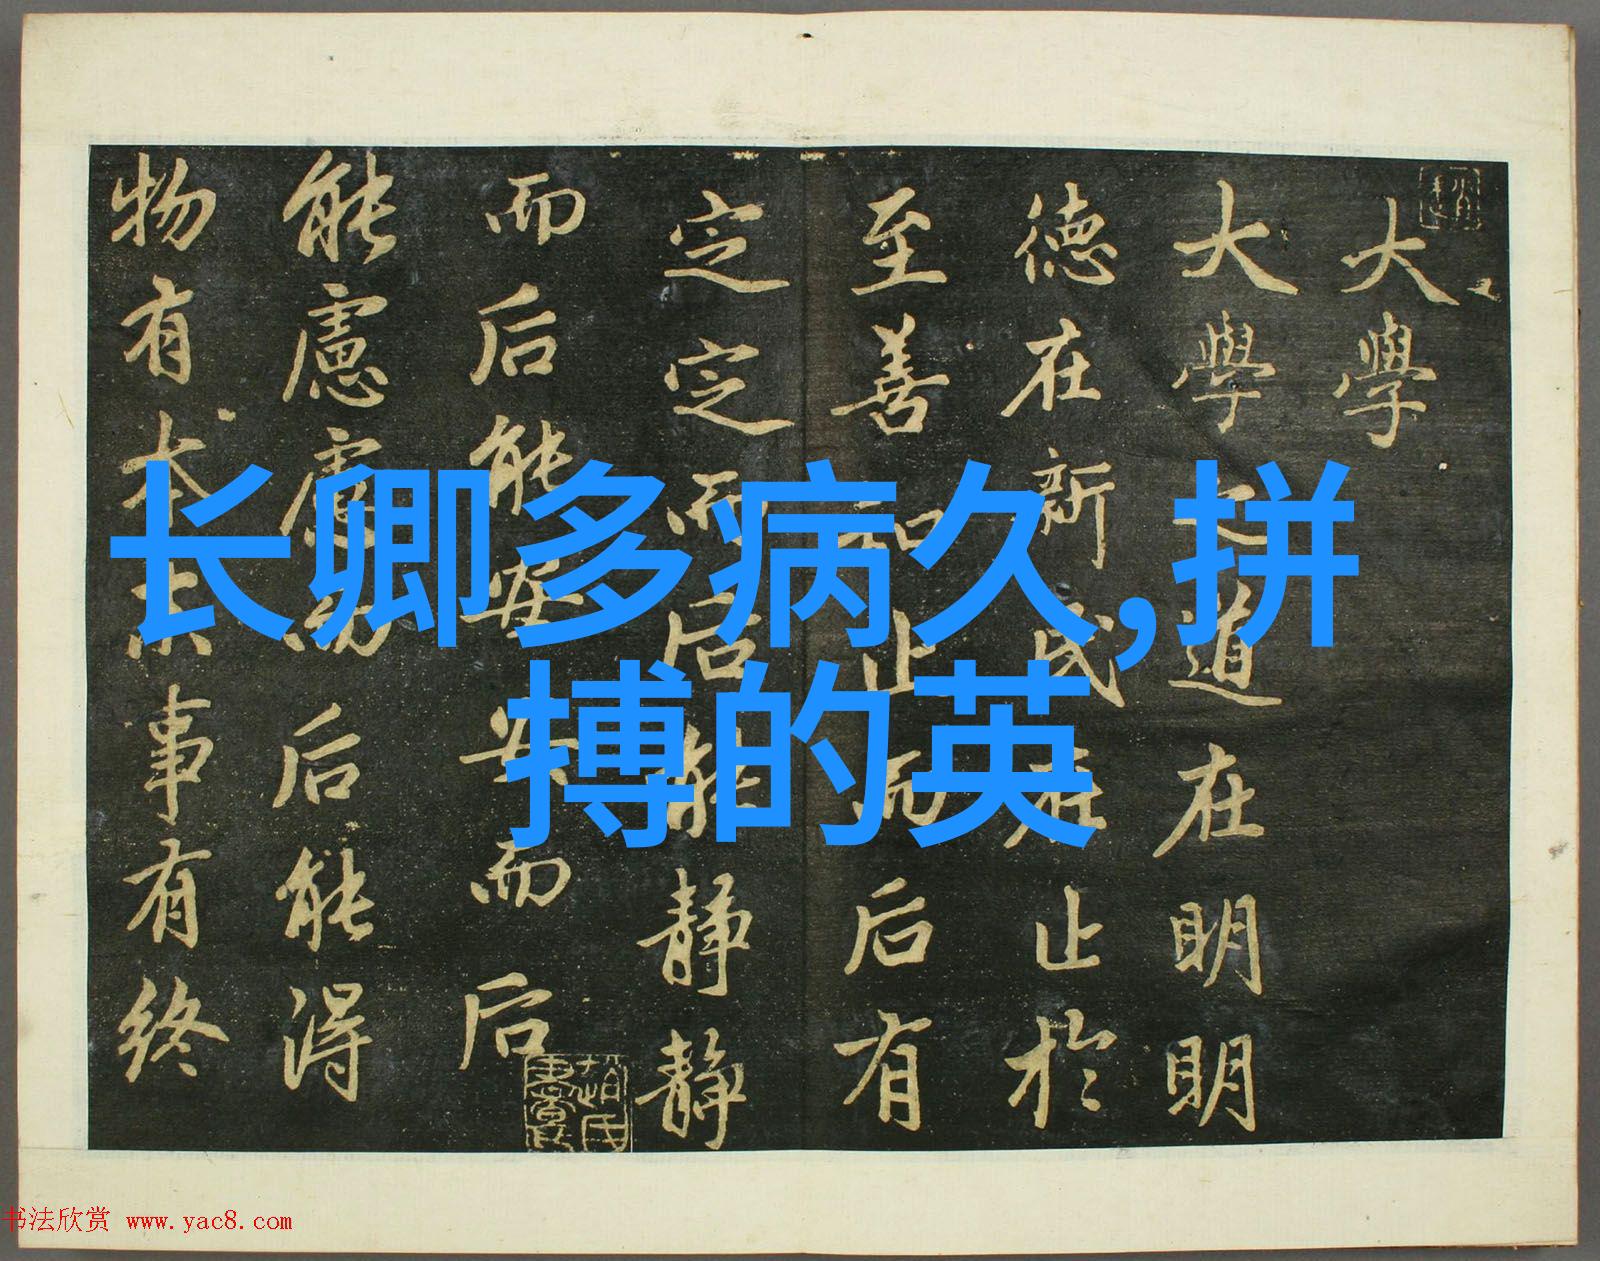 大學
大學之道在明明
德在新民在止於
至善知止而后有
定定而后能静静
而后能安安而后
能慮慮而后能得
物有本末事有終
长卿多病久,拼
搏的英
书法欣赏 www.yac8.com